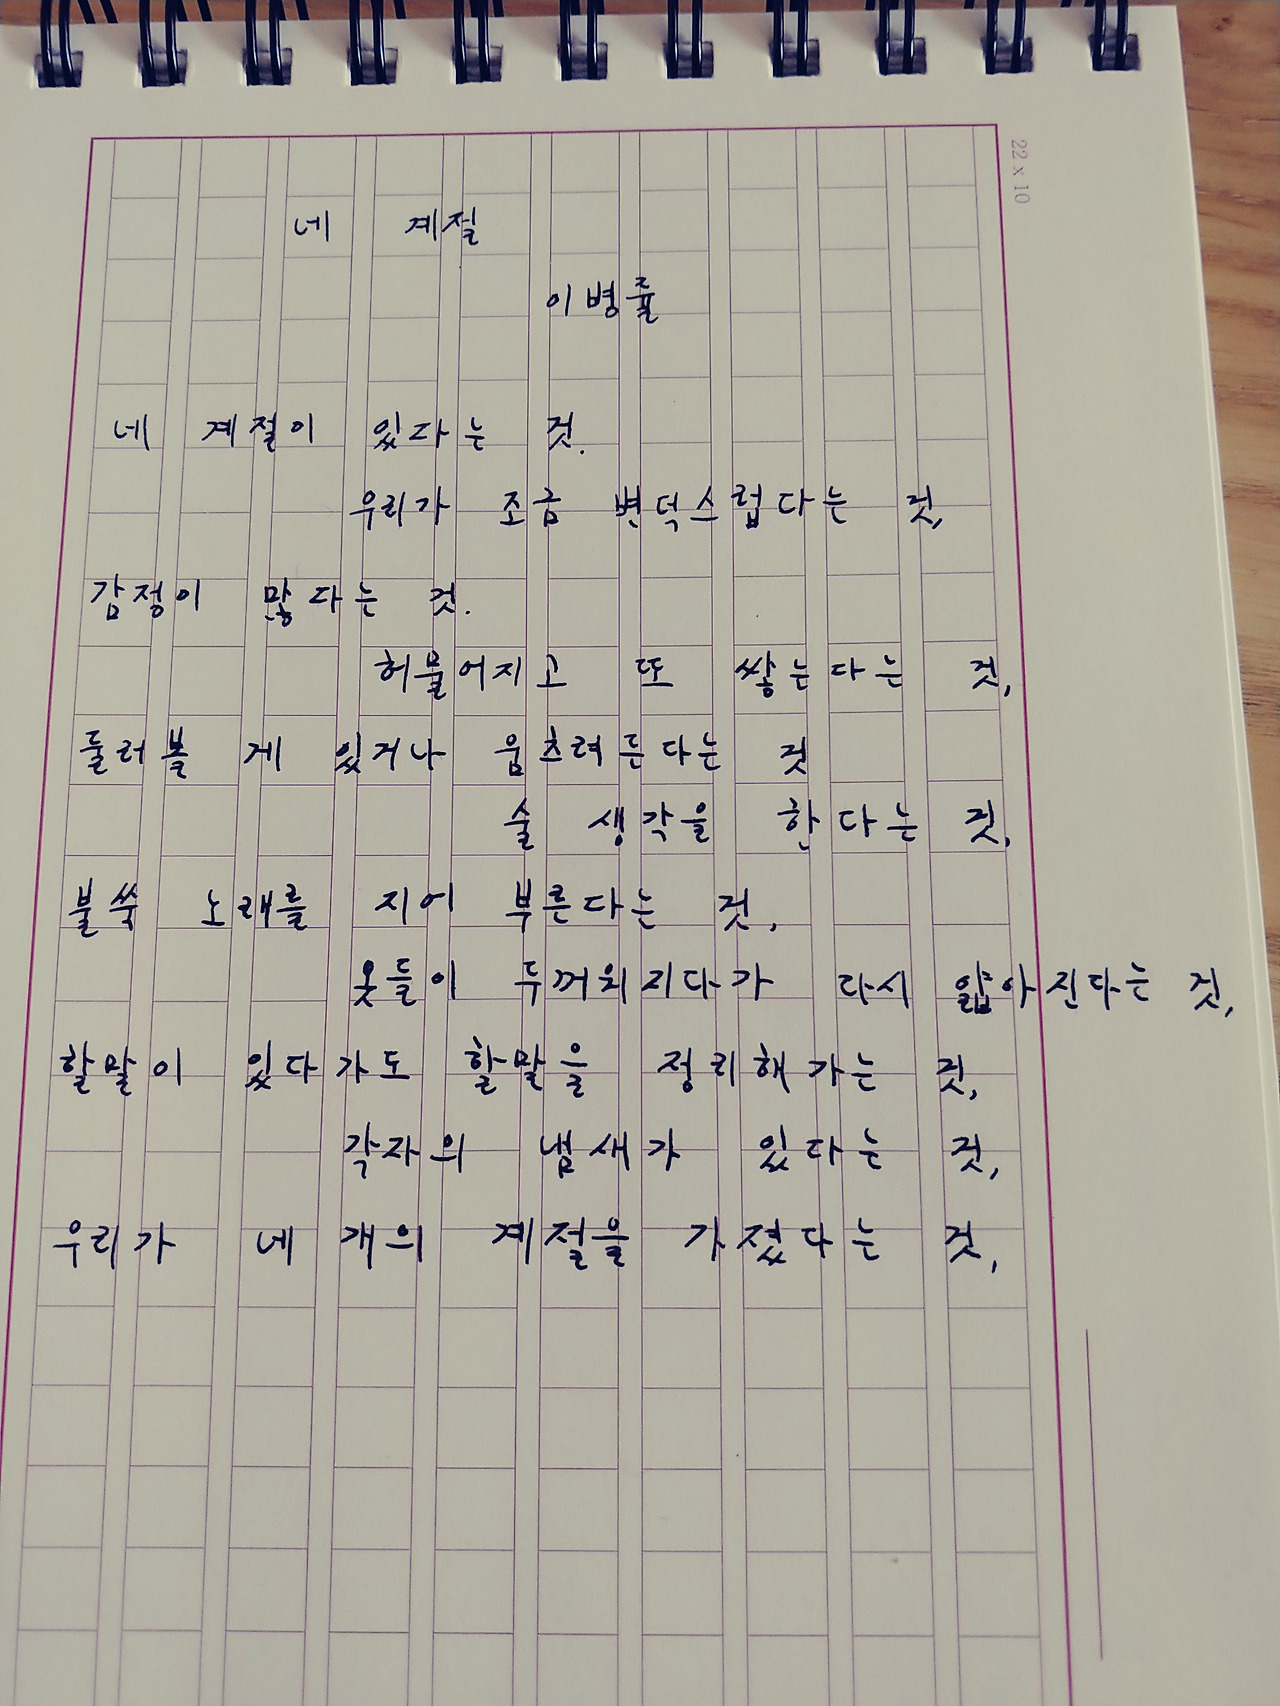 22 x 10
네 계절
이병률
네 계절이 있다는 것.
우리가 조금 변덕스럽다는 것,
감정이 많다는 것.
허물어지고 또 쌓는다는 것,
둘러볼 게 있거나 움츠려든다는 것
술 생각을 한다는 것,
불쑥 노래를 지어 부른다는 것,
옷들이 두꺼워지다가 다시 얇아진다는 것,
할말이 있다가도 할말을 정리해가는 것,
각자의 냄새가 있다는 것,
우리가 네 개의 계절을 가졌다는 것,